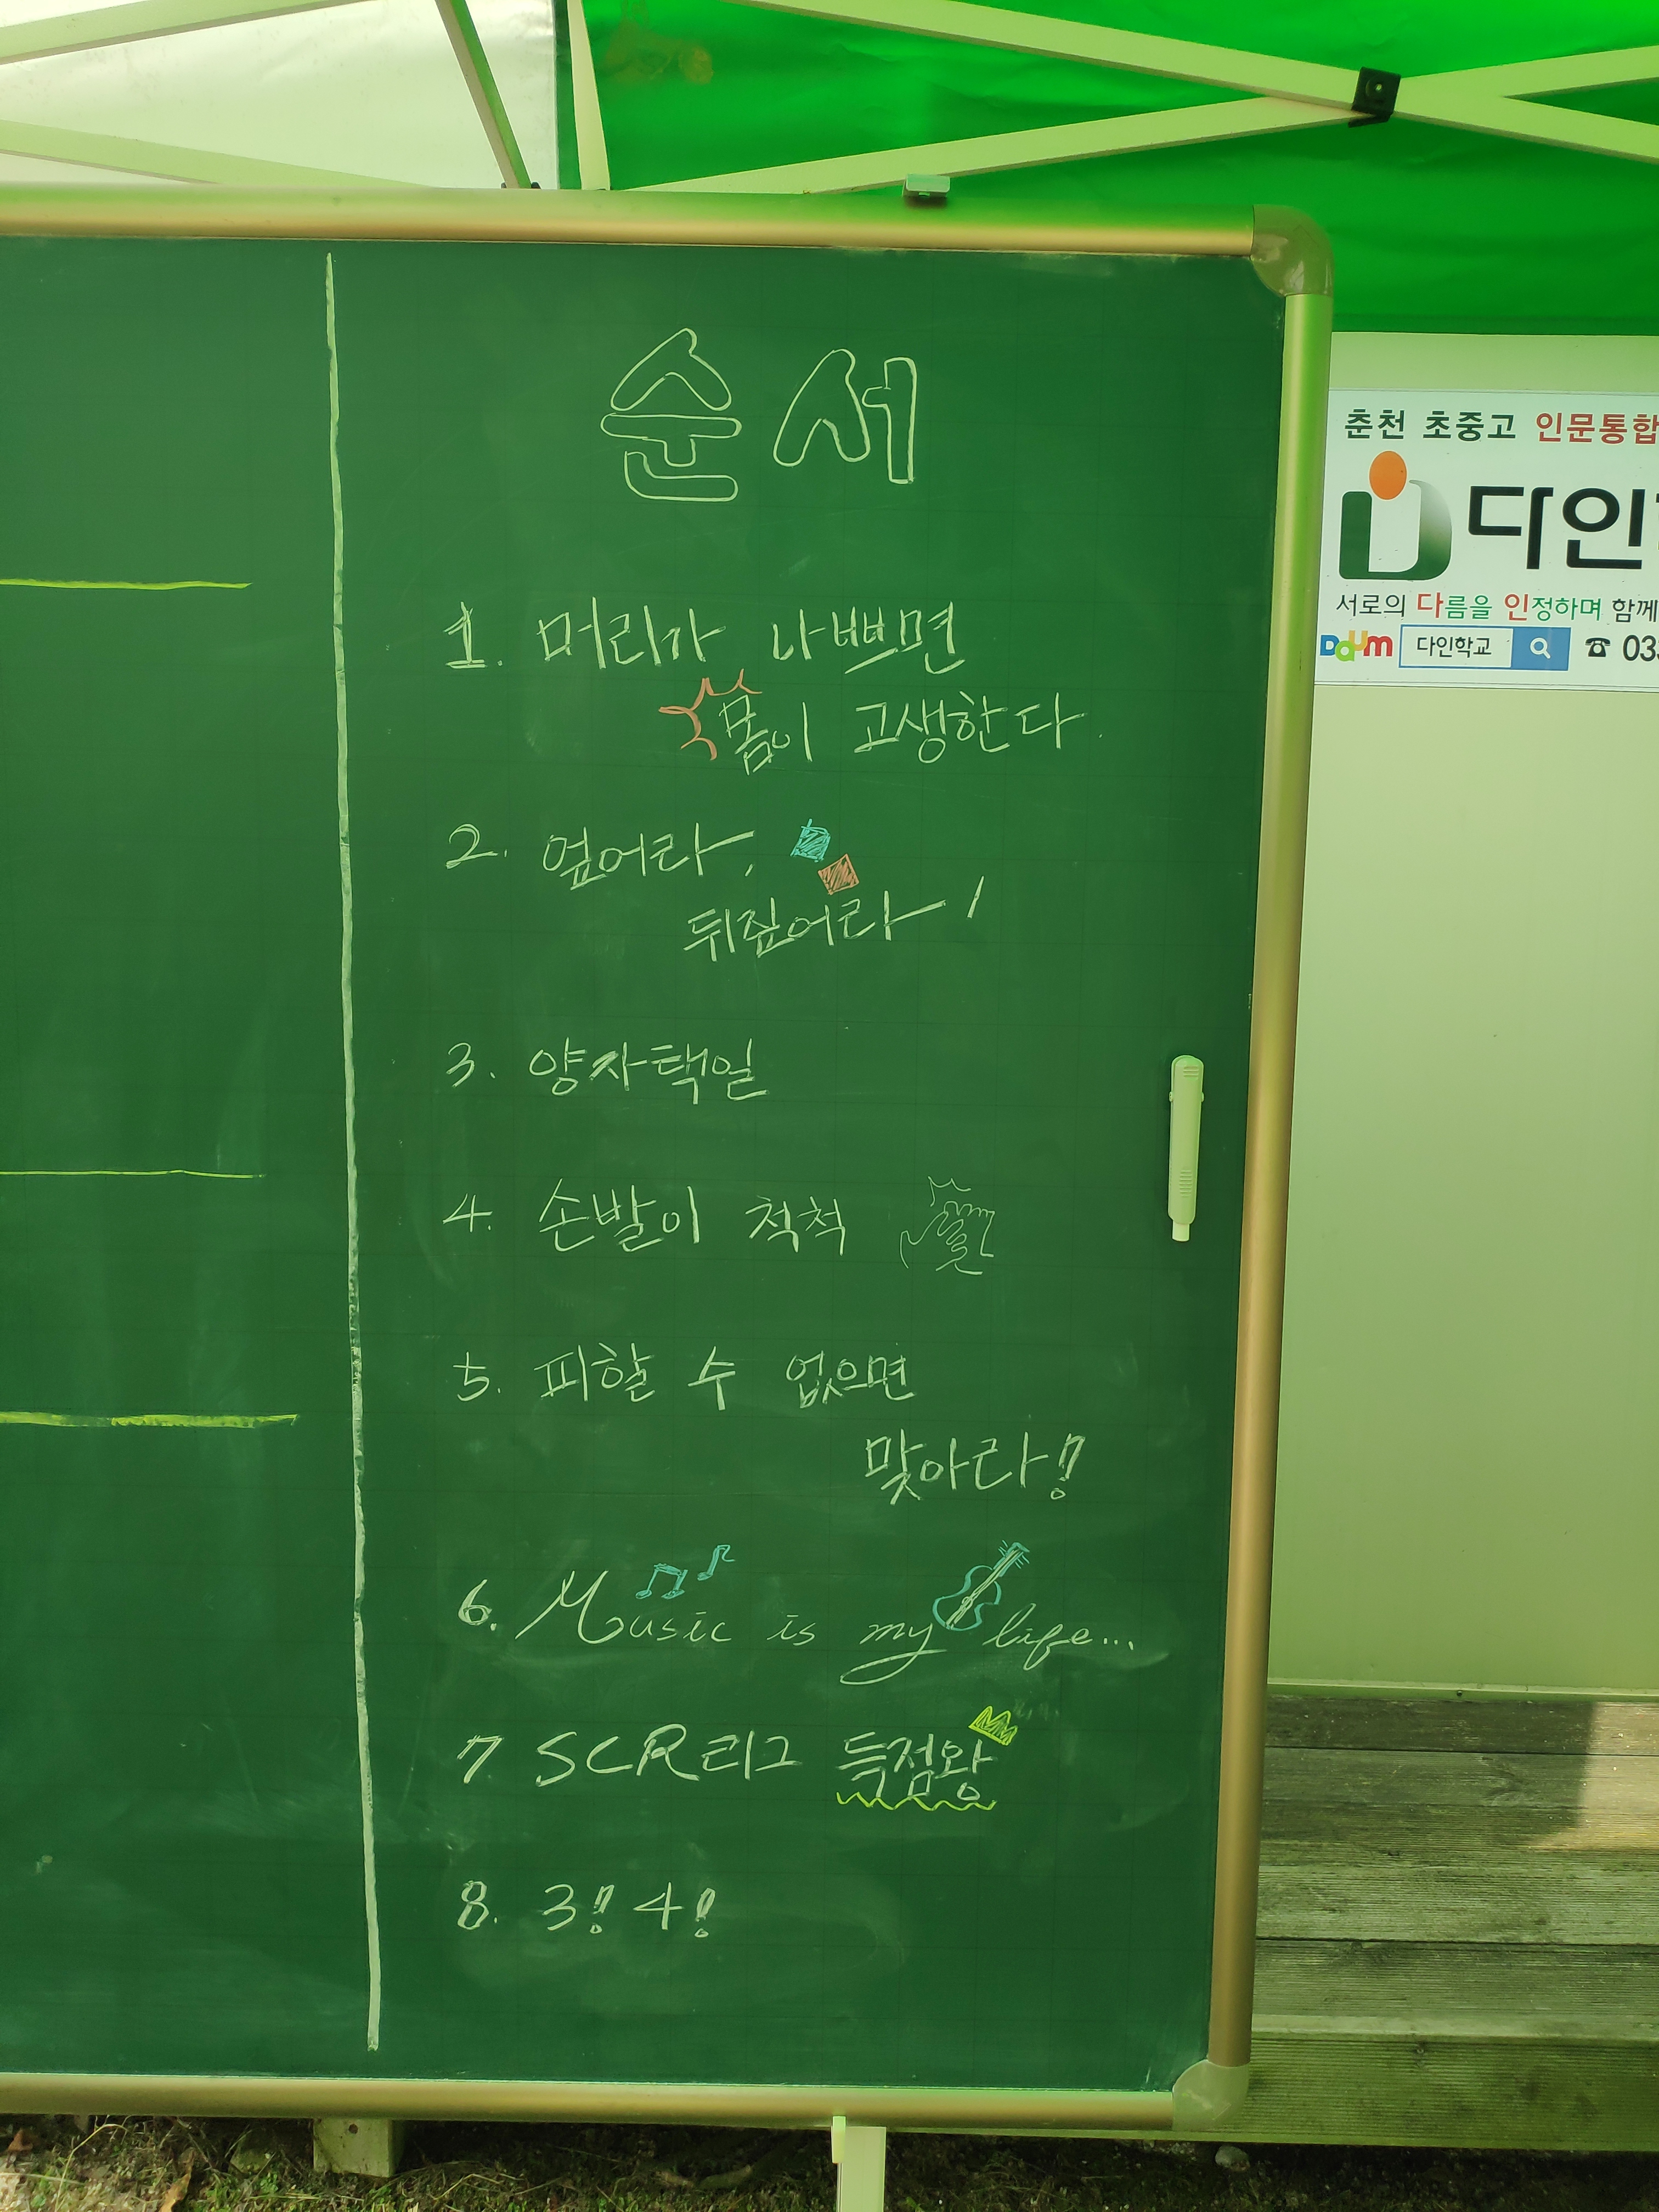 순서
1. 머리가 나쁘면
몸이 고생한다.
2. 엎어라,
뒤집어라!
3. 양자택일
4. 손발이 척척
5. 피할 수 없으면
맞아라!
6. Music is my life...
7 SCR리그 득점왕
8. 3! 4!
춘천 초중고 인문통합
다인
서로의 다름을 인정하며 함께
Daum 다인학교 ☎ 033